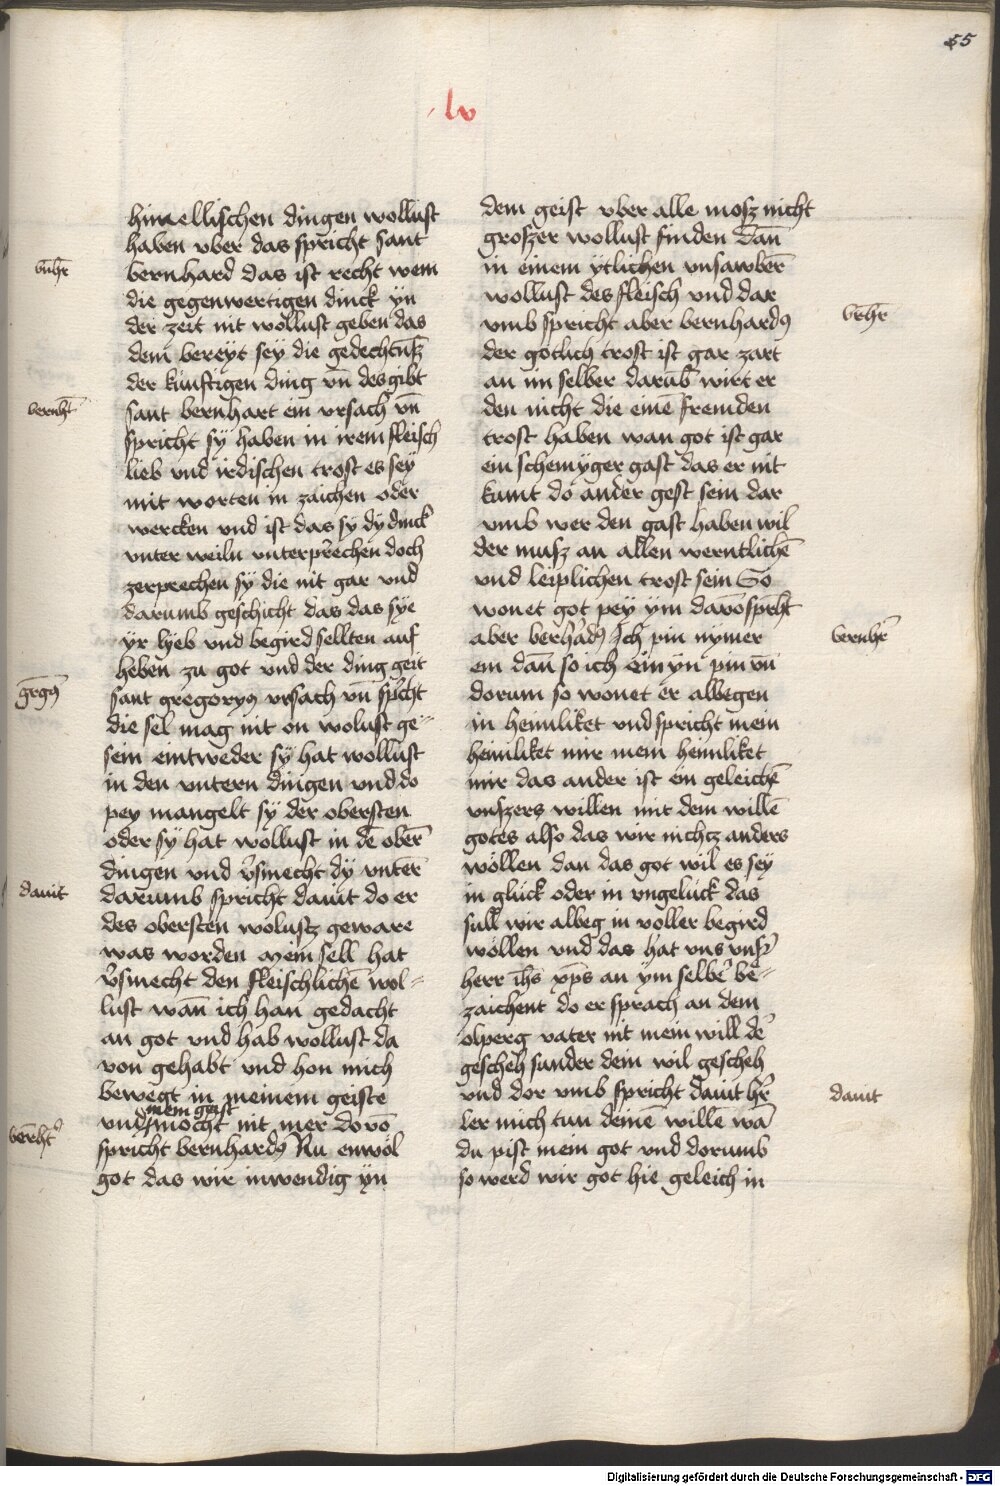 55
lv
himellischen dingen wollust
haben vber das spricht sant
bernhard das ist recht wem
die gegenwertigen dinck yn
der zeit nit wollust geben das
dem bereyt sey die gedechtnüß
der künftigen ding vn̄ des gibt
sant bernhart ein vrsach vn̄
spricht sy haben in irem fleisch
lieb vnd irdischen trost es sey
mit worten in zaichen oder
wercken vnd ist das sy dy dinck
vnter weiln vnterprechen doch
zerprechen sy die nit gar vnd
darumb geschicht das das sye
yr lyeb vnd begird sellten auf
heben zu got vnd der ding geit
sant gregoryꝰ vrsach vn̄ sp̄cht
die sel mag nit on wolust ge⸗
sein eintweder sy hat wollust
in den vntern dingen vnd do
pey mangelt sy der obersten
oder sy hat wollust in dē ober̄
dingen vnd v̄smecht dy vnter̄
darumb spricht dauit do er
des obersten wolustz geware
was worden mein sell hat
v̄smecht den fleischlichē wol⸗
lust wan̄ ich han gedacht
an got vnd hab wollust da
von gehabt vnd hon mich
bewegt in meinem geiste
mein geist
vnd mocht nit mer do vō
spricht bernhardꝰ Nu enwöl
got das wir inwendig yn
dem geist vber alle mosz nicht
groszer wollust finden dan̄
in einem ytlichen vnsawber̄
wollust des fleisch vnd dar
vmb spricht aber bernhardꝰ
der götlich trost ist gar zart
an im selber darūb wirt er
den nicht die einē fremden
trost haben wan got ist gar
ein schemyger gast das er nit
kumt do ander gest sein dar
vmb wer den gast haben wil
der musz an allen werntlichē
vnd leiplichen trost sein So
wonet got pey ym davō sp̄cht
aber bern̄h̄adꝰ Ich pin nymer
ein dan̄ so ich ein yn pin vn̄
dorum so wonet er albegen
in heimliket vnd spricht mein
heimliket mir mein heimliket
mir das ander ist ein geleichē
vnszers willen mit dem willē
gotes also das wir nichtz anders
wöllen dan das got wil es sey
in glück oder in vngelück das
sull wir albeg in voller begird
wöllen vnd das hat vns vnsͬ
herr ih̄s xp̄s an ym selber be⸗
zaichent do er sprach an dem
ölperg vater nit mein will deͬ
gescheh sunder dein wil gescheh
vnd dor vmb spricht dauit hr̄
ler mich tun deinē willē wā
du pist mein got vnd dorumb
so werd wir got hie geleich in
bernh̄t
greḡꝰ
dauit
bern̄htꝰ
bernhr̄
dauit
Digitalisierung gefördert durch die Deutsche Forschungsgemeinschaft - DFG